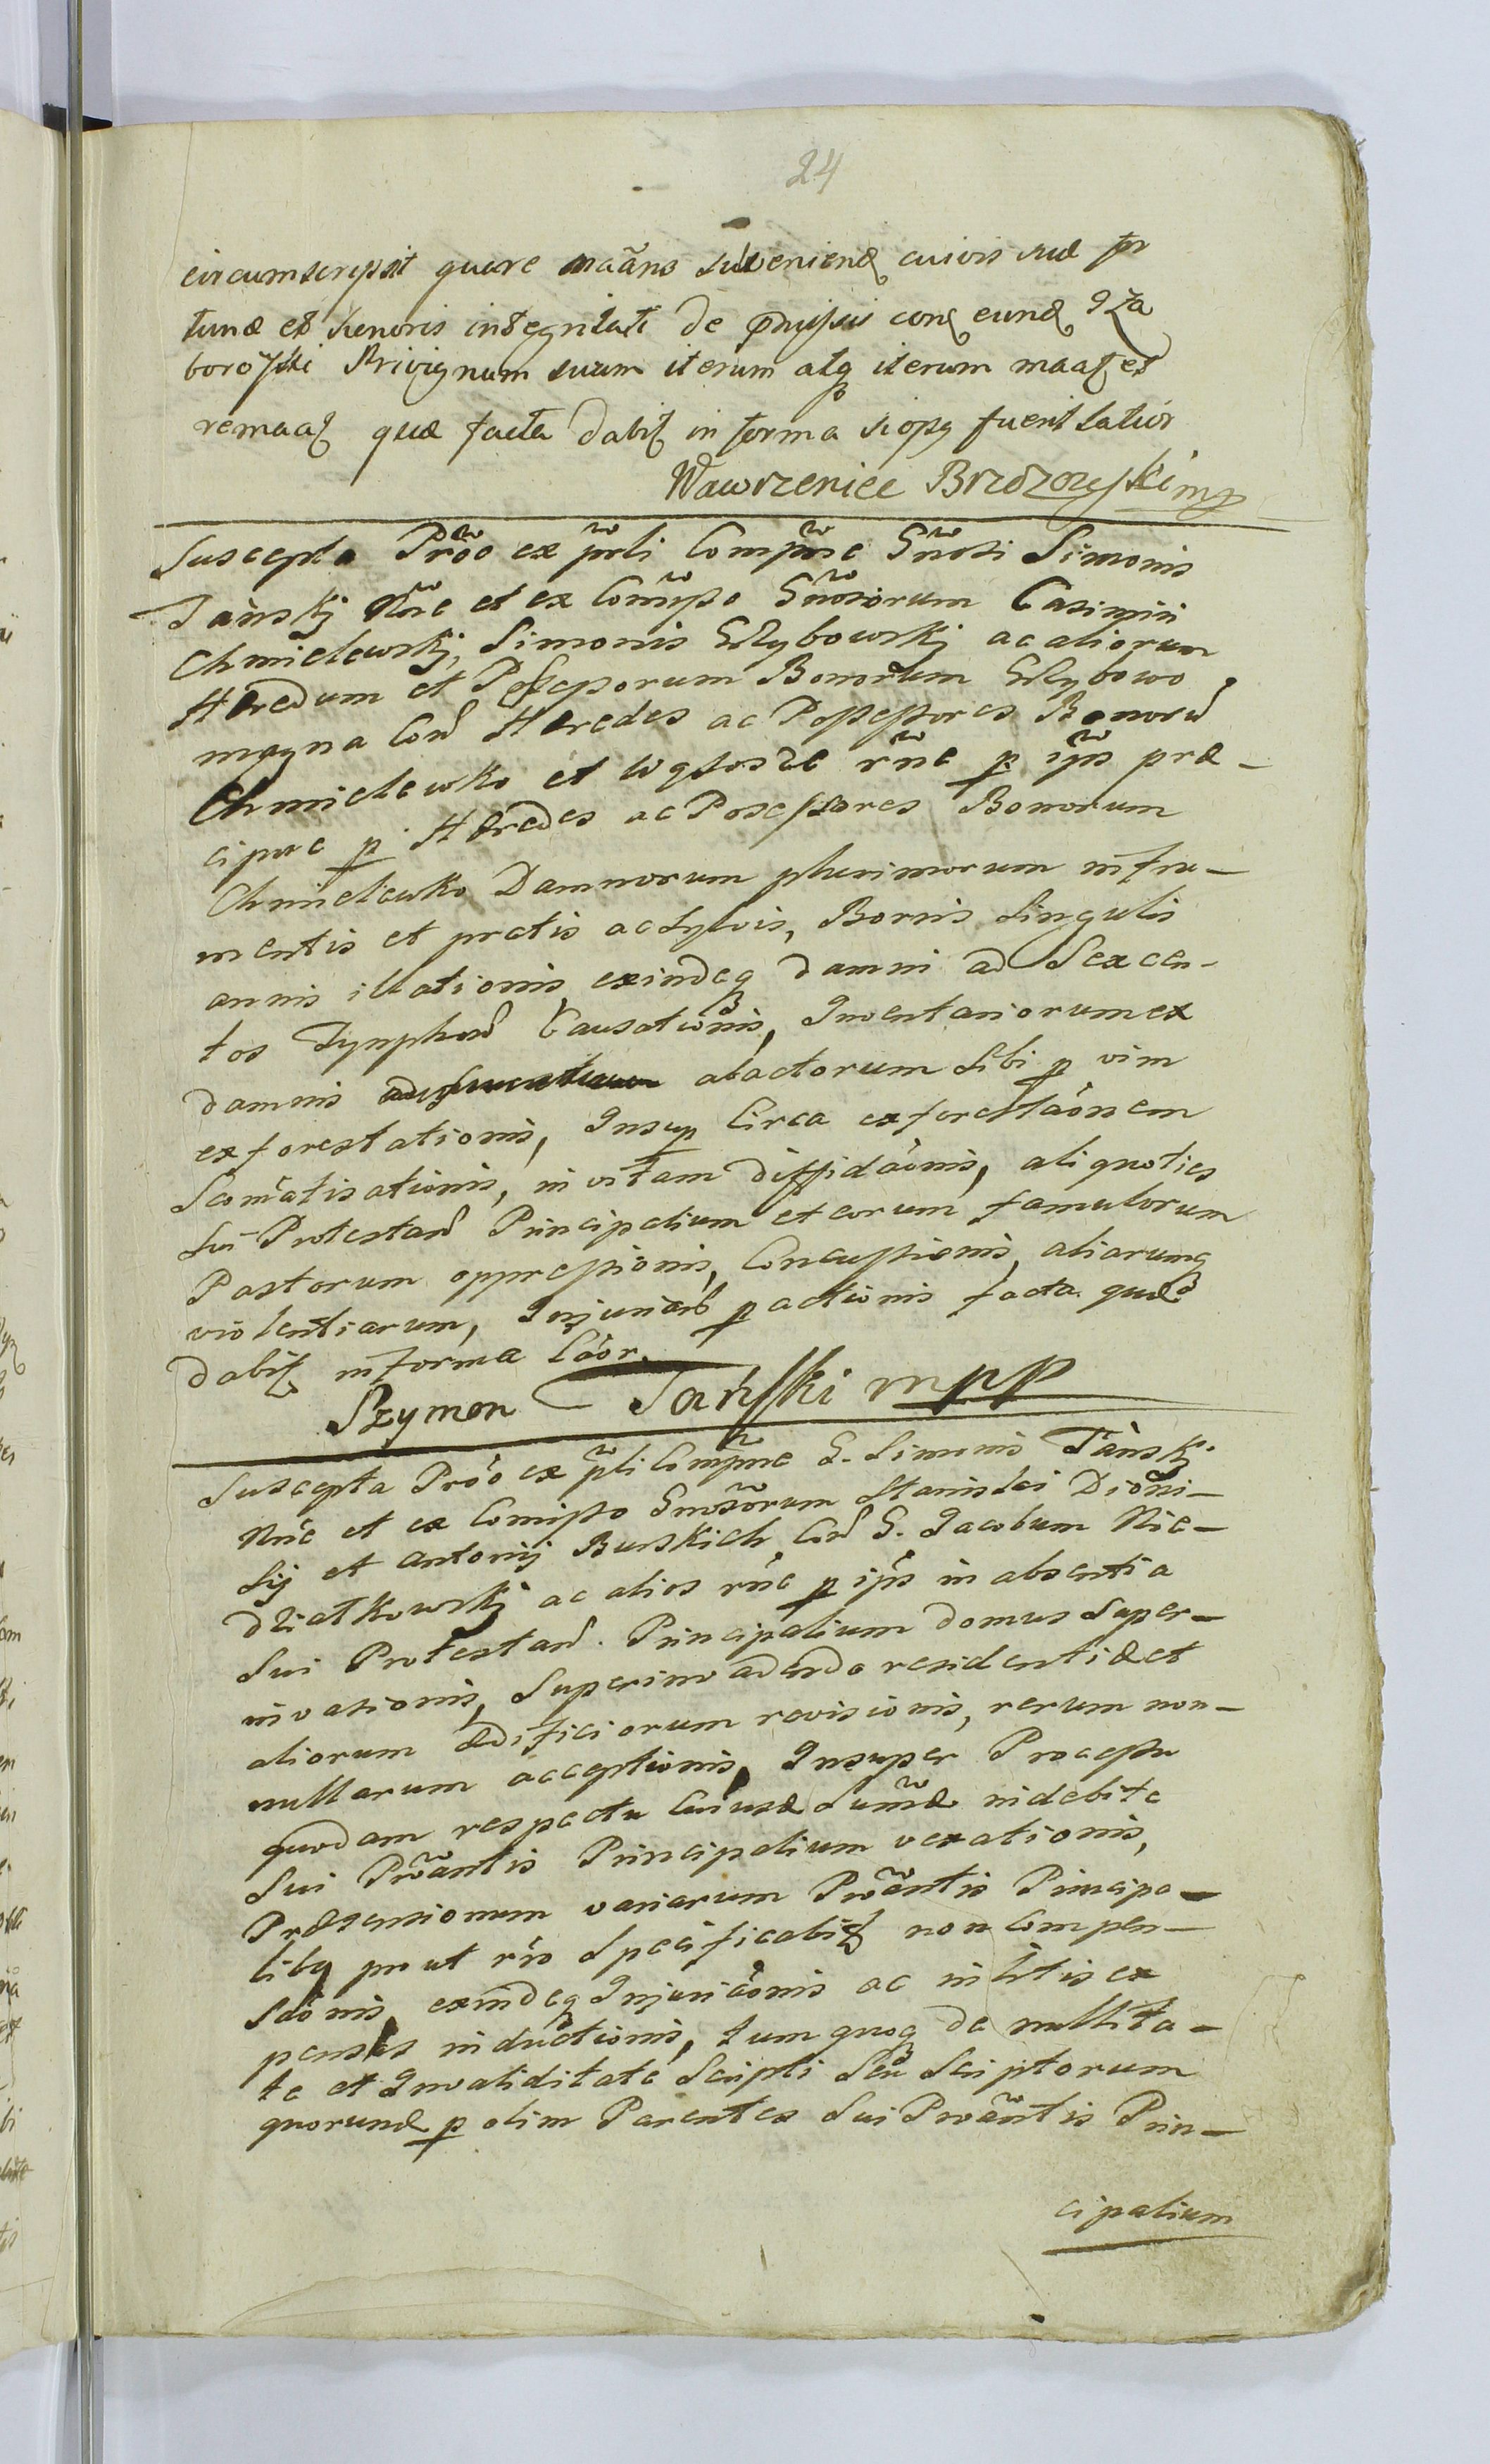 24
circumscripsit quare maãns subveniend cuivis suæ for
tunæ et honoris integritati de præmissis cond eund Iza
borowski Privignum suum iterum atq iterum maat et
remaat quæ facta dabit in forma si opq fuerit latior
Wawrzeniec Brzozowski mp
Suscepta Prõo ex p̃rli Comp̃ne Gñosi Simonis
Tanskj Nõie et ex Com̃isso Gñosorum Casimiri
Chmielewskj, Simonis Grzybowskj ac aliorum
Hæredum et Possessorum Bonorum Grzybowo
magna Con Hæredes ac Possessores Bonorũ
Chmielewko et Wąsosze rñe p ip̃s præ-
cipue p Hæredes ac Posessores Bonorum
Chmielewko Damnorum plurimorum in fru-
mentis et pratis ac Sylvis, Bonis Singulis
annis illationis, exindeq damni ad Sexcen-
tos Tynphor Causationis, Inventariorum ex
damnis abactorum sibi p vim
exforestationis, Insup Circa exforestaõnem
Scom̃atisationis, in vitam diffidaõnis, aliquoties
Sui Protestan Principalium et eorum famulorum
Pastorum oppressionis, Concussionis, aliarumq
violentiarum, Injuriarũ p actionis facta quæ
dabit in forma Lãor.
Szymon Tański mpp
Suscepta Prõo ex p̃rli Comp̃ne G. Simonis Tanskj
Nõie et ex Comisso Gnosorum Stanislai Dioni-
sij et Antonij Burskich Con G. Jacobum Nie-
działkowskj ac alios rñe p ip̃s in absentia
Sui Protestan. Principalium domus Super-
invasionis, Superinvadendo residentiæ et
aliorum ædificiorum revisionis, rerum non-
nullarum acceptionis, Insuper Processu
quodam respectu Cujusd Sum̃æ indebite
Sui Prõantis Principalium vexationis,
Prætensionum variarum Prõantis Principa-
libq prout rõo Specificabit non Compen-
saõnis, exindeq Injuriaõnis ac in litis ex
penses inductionis, tum quoq de nullita-
te et Invaliditate Scripti Seu Scriptorum
quorund p olim Parentes Sui Prõantis Prin-
cipalium